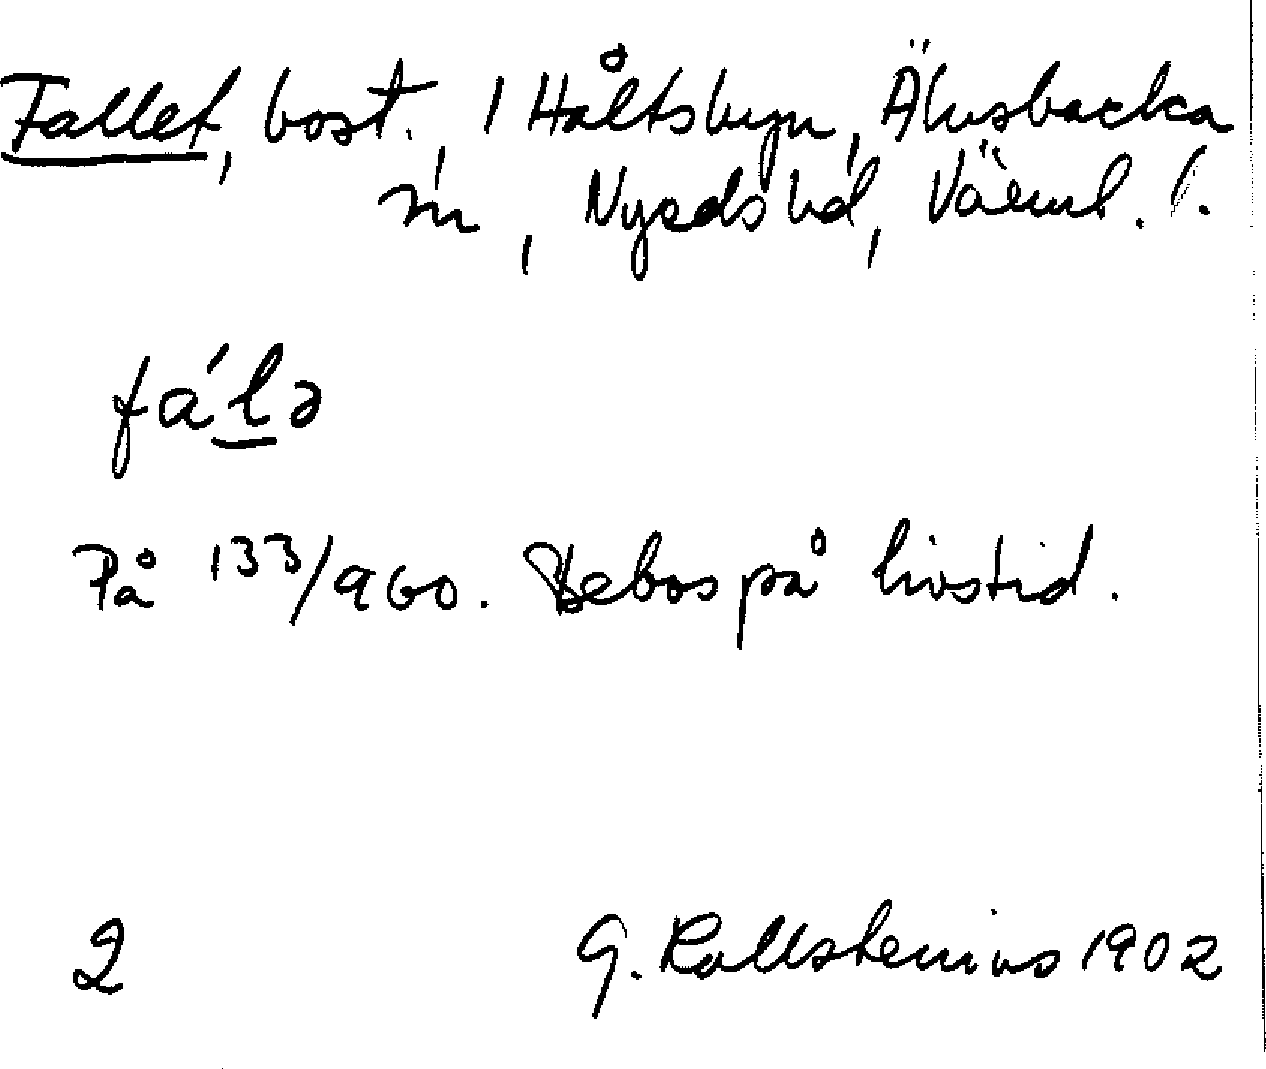 Fallet, bost., 1 Håltsbyn, Älvsbacka
sn, Nyeds hd, Värml. l.
fá'lə
På 133/960. Bebos på livstid.
2 G. Kallstenius 1902